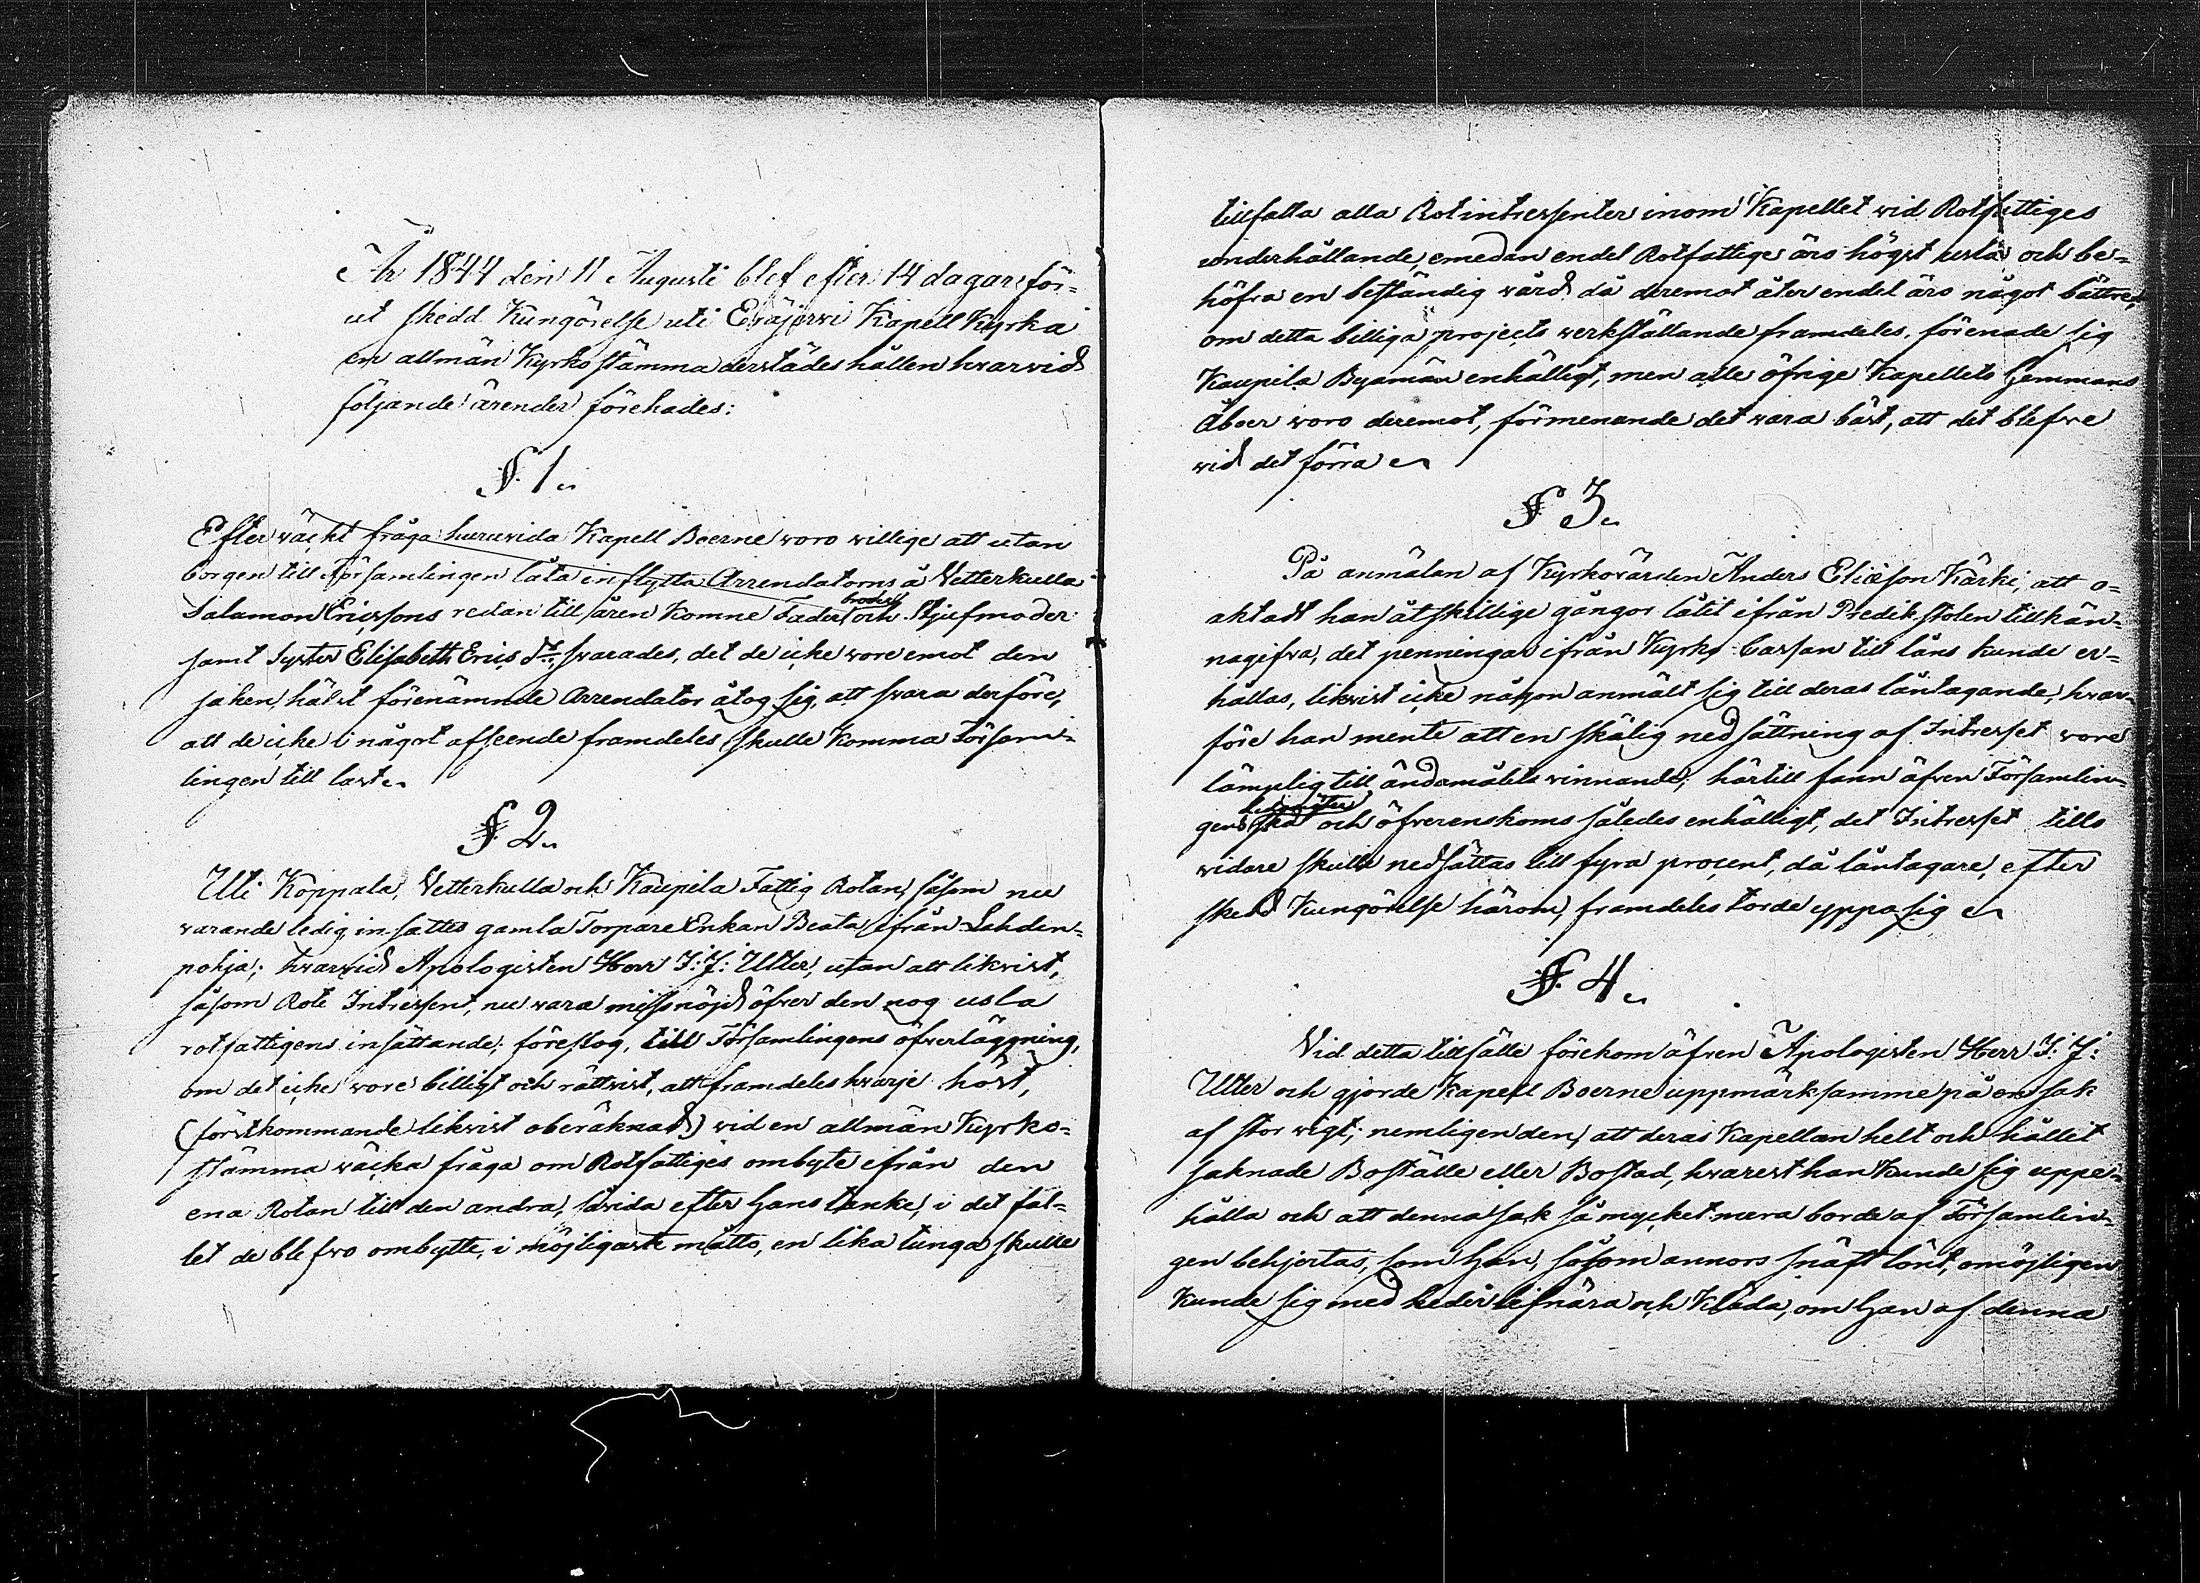 År 1844 den 11 Augusti blef efter 14 dagar för-
ut skedd Kungörelse uti Eräjerwi Kapell Kyrka
en allmän Kyrkostämma derstädes hållen hvarvid
följande ärender förehades:
§ 1.
Efter väckt fråga huruvida Kapell Boerne voro villige att utan
borgen till Församlingen låta inflytta Arrendatorns å Vetterkulla
Salamon Ericssons redan till åren komne Fader och Stjufmoder
samt Syster Elisabeth Erics Dr, svarades, det de icke vore emot den
saken, hälst förenämnde Arrendator åtog sig, att svara derföre,
att de icke i något afseende framdeles skulle komma Försam-
lingen till last.
§ 2.
Uti Koppala, Vetterkulla och Kaupila Fattig Rotan, såsom nu
varande ledig insattes gamla Torpare Enkan Beata ifrån Lahden-
pohja; hvarvid Apologisten Herr I: J: Utter, utan att likvist,
såsom Rote Intressent, nu vara missnöjd öfver den nog usla
rotfattigens insättande; föreslog, till Församlingens öfverläggning,
om det icke vore billigt och rättvist, att framdeles hvarje höst,
(förstkommande likvist oberäknad) vid en allmän Kyrko-
stämma väcka fråga om Rotfattiges ombyte ifrån den
ena Rotan till den andra, såvida efter Hans tanke, i det fal-
let de blefvo ombytte, i möjligaste måtto, en lika tunga skulle
tillfalla alla Rotintressenter inom Kapellet vid Rotfattiges
underhållande, emedan endel Rotfattige äro högst usla och be-
höfva en beständig vård då deremot åter endel äro något bättre,
om detta billiga projects verkställande framdeles, förenade sig
Kaupila Byamän enhälligt, men alle öfrige Kapellets Hemmans
Åboer voro deremot, förmenande det vara bäst, att det blefve
vid det förra
§ 3.
På anmälan af Kyrkovärden Anders Eliæson Kärki, att o-
aktadt han åtskillige gångor låtit ifrån Predikstolen tillkän-
nagifva, det penningar ifrån Kyrko Cassan till låns kunde er-
hållas, likvist icke någon anmält sig till deras låntagande, hvar-
före han mente att en skälig nedsättning af Intresset vore
lämplig till ändamålets vinnande; härtill fann äfven Församlin-
gen skäl och öfverenskoms således enhälligt, det Intresset tills
vidare skulle nedsättas till fyra procent, då låntagare, efter
skedd Kungörelse härom, framdeles torde yppa sig
§ 4.
Vid detta tillfälle förekom äfven Apologisten Herr I: J:
Utter och gjorde Kapell Boerne uppmärksamme på en sak
af stor vigt; nemligen den, att deras Kapellan helt och hållet
saknade Boställe eller Bostad, hvarest han kunde sig uppe-
hålla och att denna sak så mycket mera borde af Församlin-
gen behjertas, som Han, såsom annors snäft lönt, omöjligen
kunde sig med heder lifnära och kläda, om Han af denna